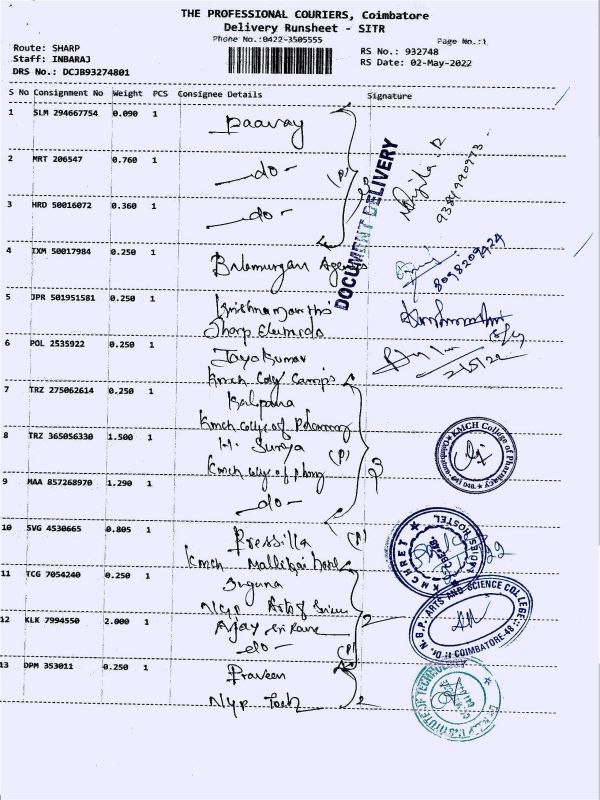 THE PROFESSIONAL COURIERS, Coimbatore
Delivery Runsheet - SITR
Phone No.:0422-3505555
Page No.:1
Route: SHARP
RS No.: 932748
Staff: INBARAJ
RS Date: 02-May-2022
DRS No.: DCJB93274801
S No Consignment No Weight PCS Consignee Details Signature
1 SLM 294667754 0.090 1
Paavay
2 MRT 206547 0.760 1
-do-
3 HRD 50016072 0.360 1
-do-
DOCUMENT DELIVERY
9384990773
4 IXM 50017984 0.250 1
Balamurgan Agencies
8098209424
5 JPR 501951581 0.250 1
Sharp Electrodo
6 POL 2535922 0.250 1
Jayakumar
2/5/22
7 TRZ 275062614 0.250 1
Kmch Coy Camps
Kalpana
Kmch College of Pharmacy
8 TRZ 365056330 1.500 1
H. Surya
(P)
KMCH College of Pharmacy
Kmch College of
9 MAA 857268970 1.290 1
-do-
10 SVG 4530665 0.805 1
Pressilla
(P)
Kmch
KMCHRET
LADIES HOSTEL
11 TCG 7054240 0.250 1
Suguna
NGP Arts of Science
12 KLK 7994550 2.000 1
Ajay
-do-
(P)
Dr. N.G.P. ARTS AND SCIENCE COLLEGE
COIMBATORE-48
13 DPM 353011 0.250 1
Praveen
NGP Tech
INSTITUTE OF TECHNOLOGY